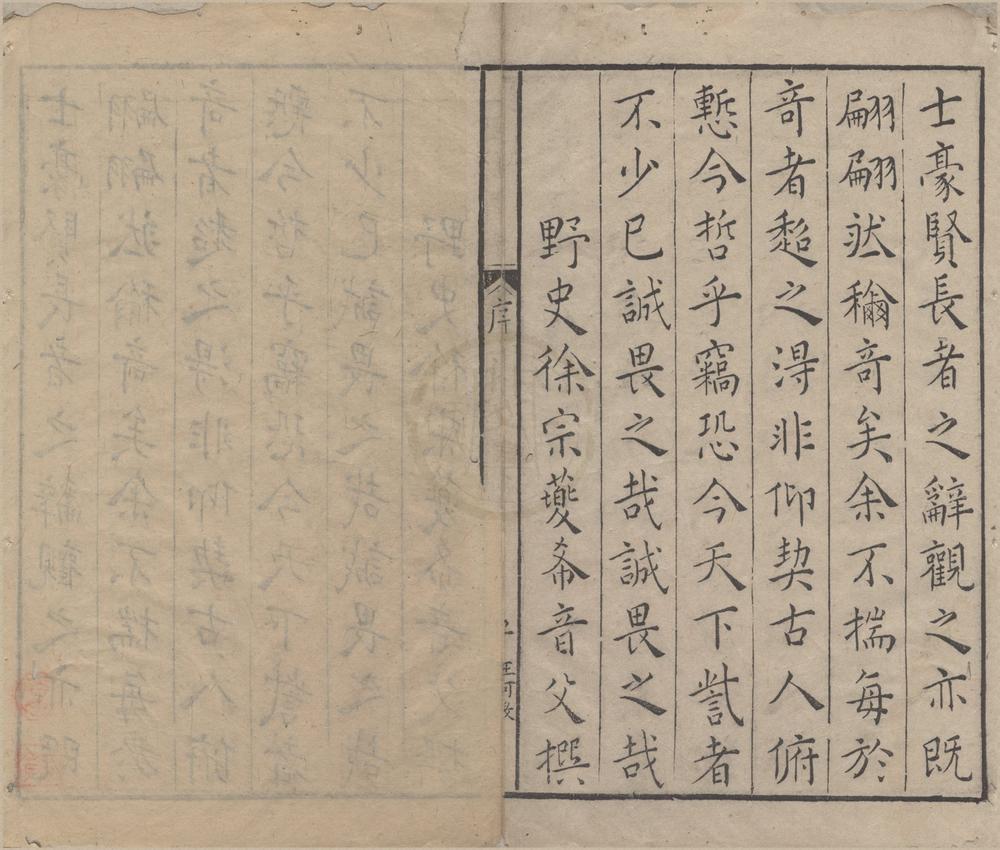 士豪賢長者之辭觀之亦既
翩翩然稱奇矣余不揣每於
竒者超之淂非仰契古人俯
慙今哲乎竊恐今天下訾者
不少已誠畏之哉誠畏之哉
野史徐宗夔希音父撰
序